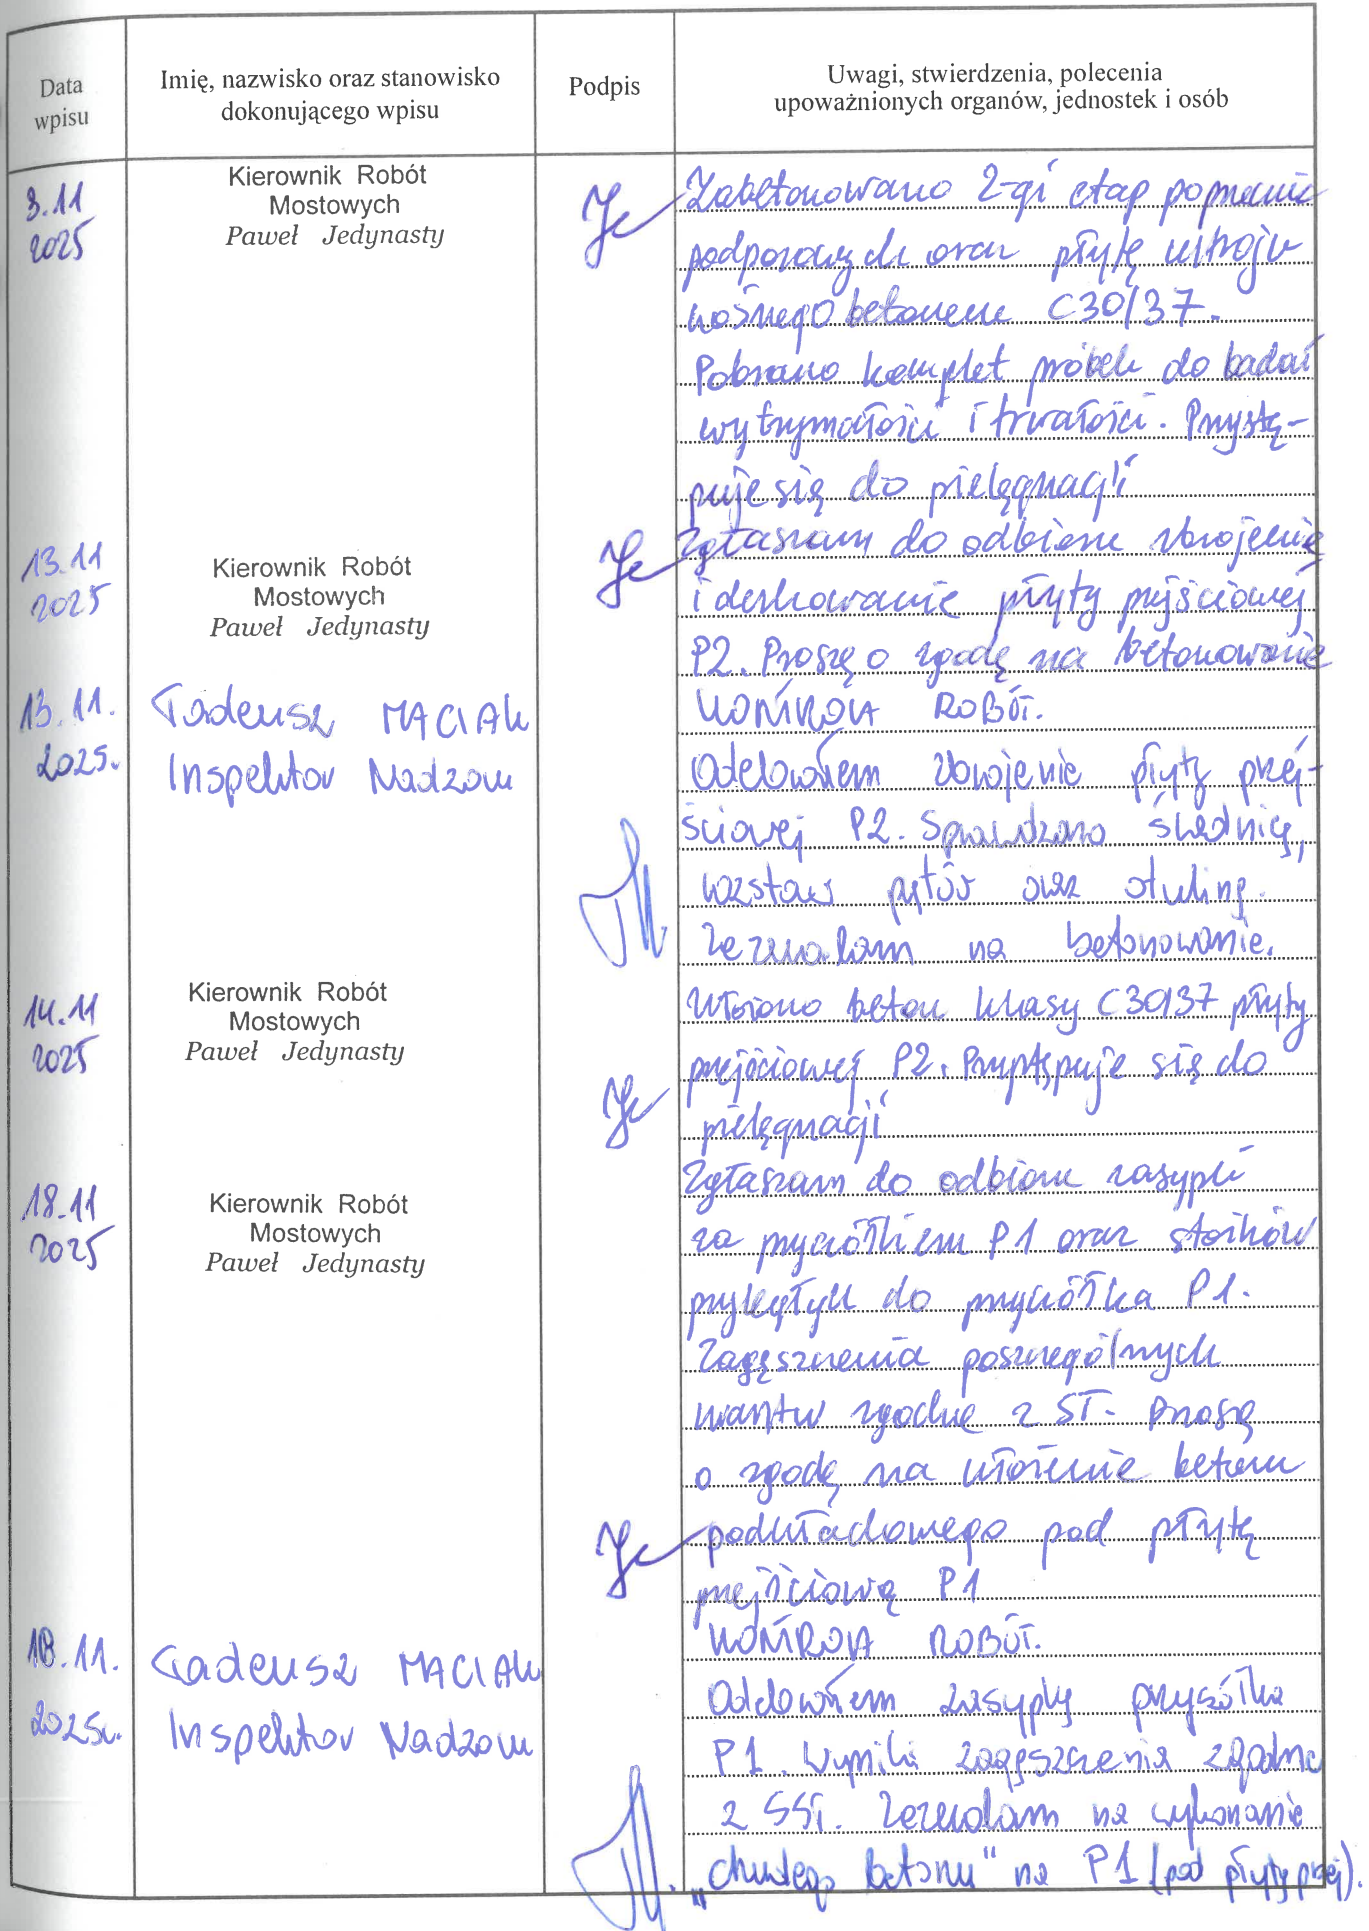 Data
wpisu
Imię, nazwisko oraz stanowisko
dokonującego wpisu
Podpis
Uwagi, stwierdzenia, polecenia
upoważnionych organów, jednostek i osób
3.11
2025
Kierownik Robót
Mostowych
Paweł Jedynasty
Zabetonowano 2-gi etap poprzecznic
podporowych oraz płytę ustroju
nośnego betonem C30/37.
Pobrano komplet próbek do badań
wytrzymałości i trwałości. Przystę-
puje się do pielęgnacji
13.11
2025
Kierownik Robót
Mostowych
Paweł Jedynasty
Zgłaszam do odbioru zbrojenie
i deskowanie płyty przejściowej
P2. Proszę o zgodę na betonowanie
13.11.
2025.
Tadeusz MACIAK
Inspektor Nadzoru
KONTROLA ROBÓT.
Odebrałem zbrojenie płyty przej-
ściowej P2. Sprawdzono średnicę,
rozstaw prętów oraz otulinę.
Zezwalam na betonowanie.
14.11
2025
Kierownik Robót
Mostowych
Paweł Jedynasty
Ułożono beton klasy C30/37 płyty
przejściowej P2. Przystępuje się do
pielęgnacji
18.11
2025
Kierownik Robót
Mostowych
Paweł Jedynasty
Zgłaszam do odbioru zasypki
za przyczółkiem P1 oraz stożków
przyległych do przyczółka P1.
Zagęszczenia poszczególnych
warstw zgodne z ST. Proszę
o zgodę na ułożenie betonu
podkładowego pod płytę
przejściową P1
18.11.
2025r.
Tadeusz MACIAK
Inspektor Nadzoru
KONTROLA ROBÓT.
Odebrałem zasypkę przyczółka
P1. Wyniki zagęszczenia zgodne
z SST. Zezwalam na wykonanie
„chudego betonu" na P1 (pod płytę przej).